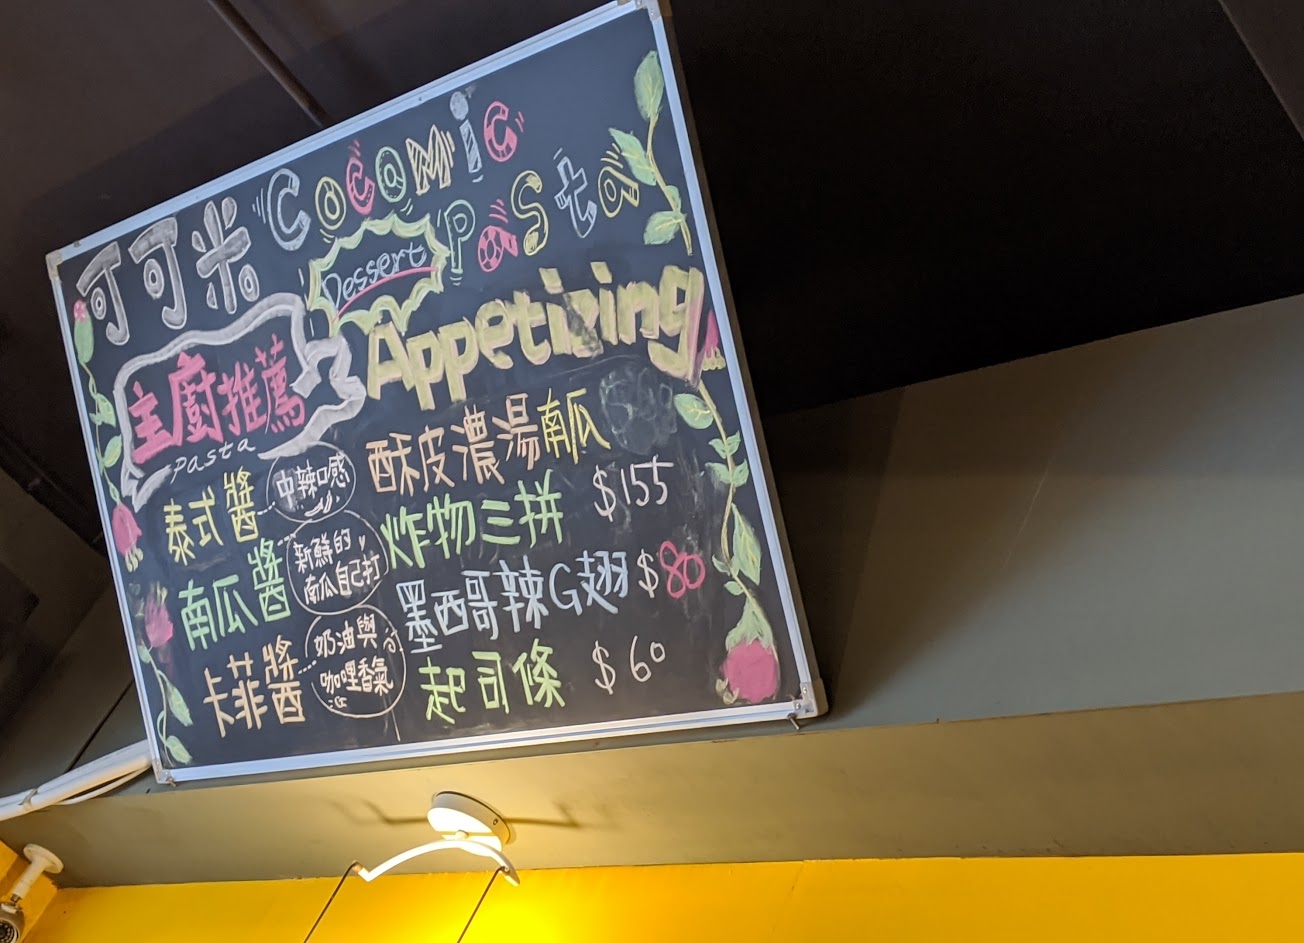 可可米 Cocomic
Pasta
Dessert
Appetizing
主廚推薦
pasta
泰式醬
中辣口感
南瓜醬
新鮮的
南瓜自己打
卡菲醬
奶油與
咖哩香氣
酥皮濃湯南瓜
炸物三拼 $155
墨西哥辣G翅 $80
起司條 $60